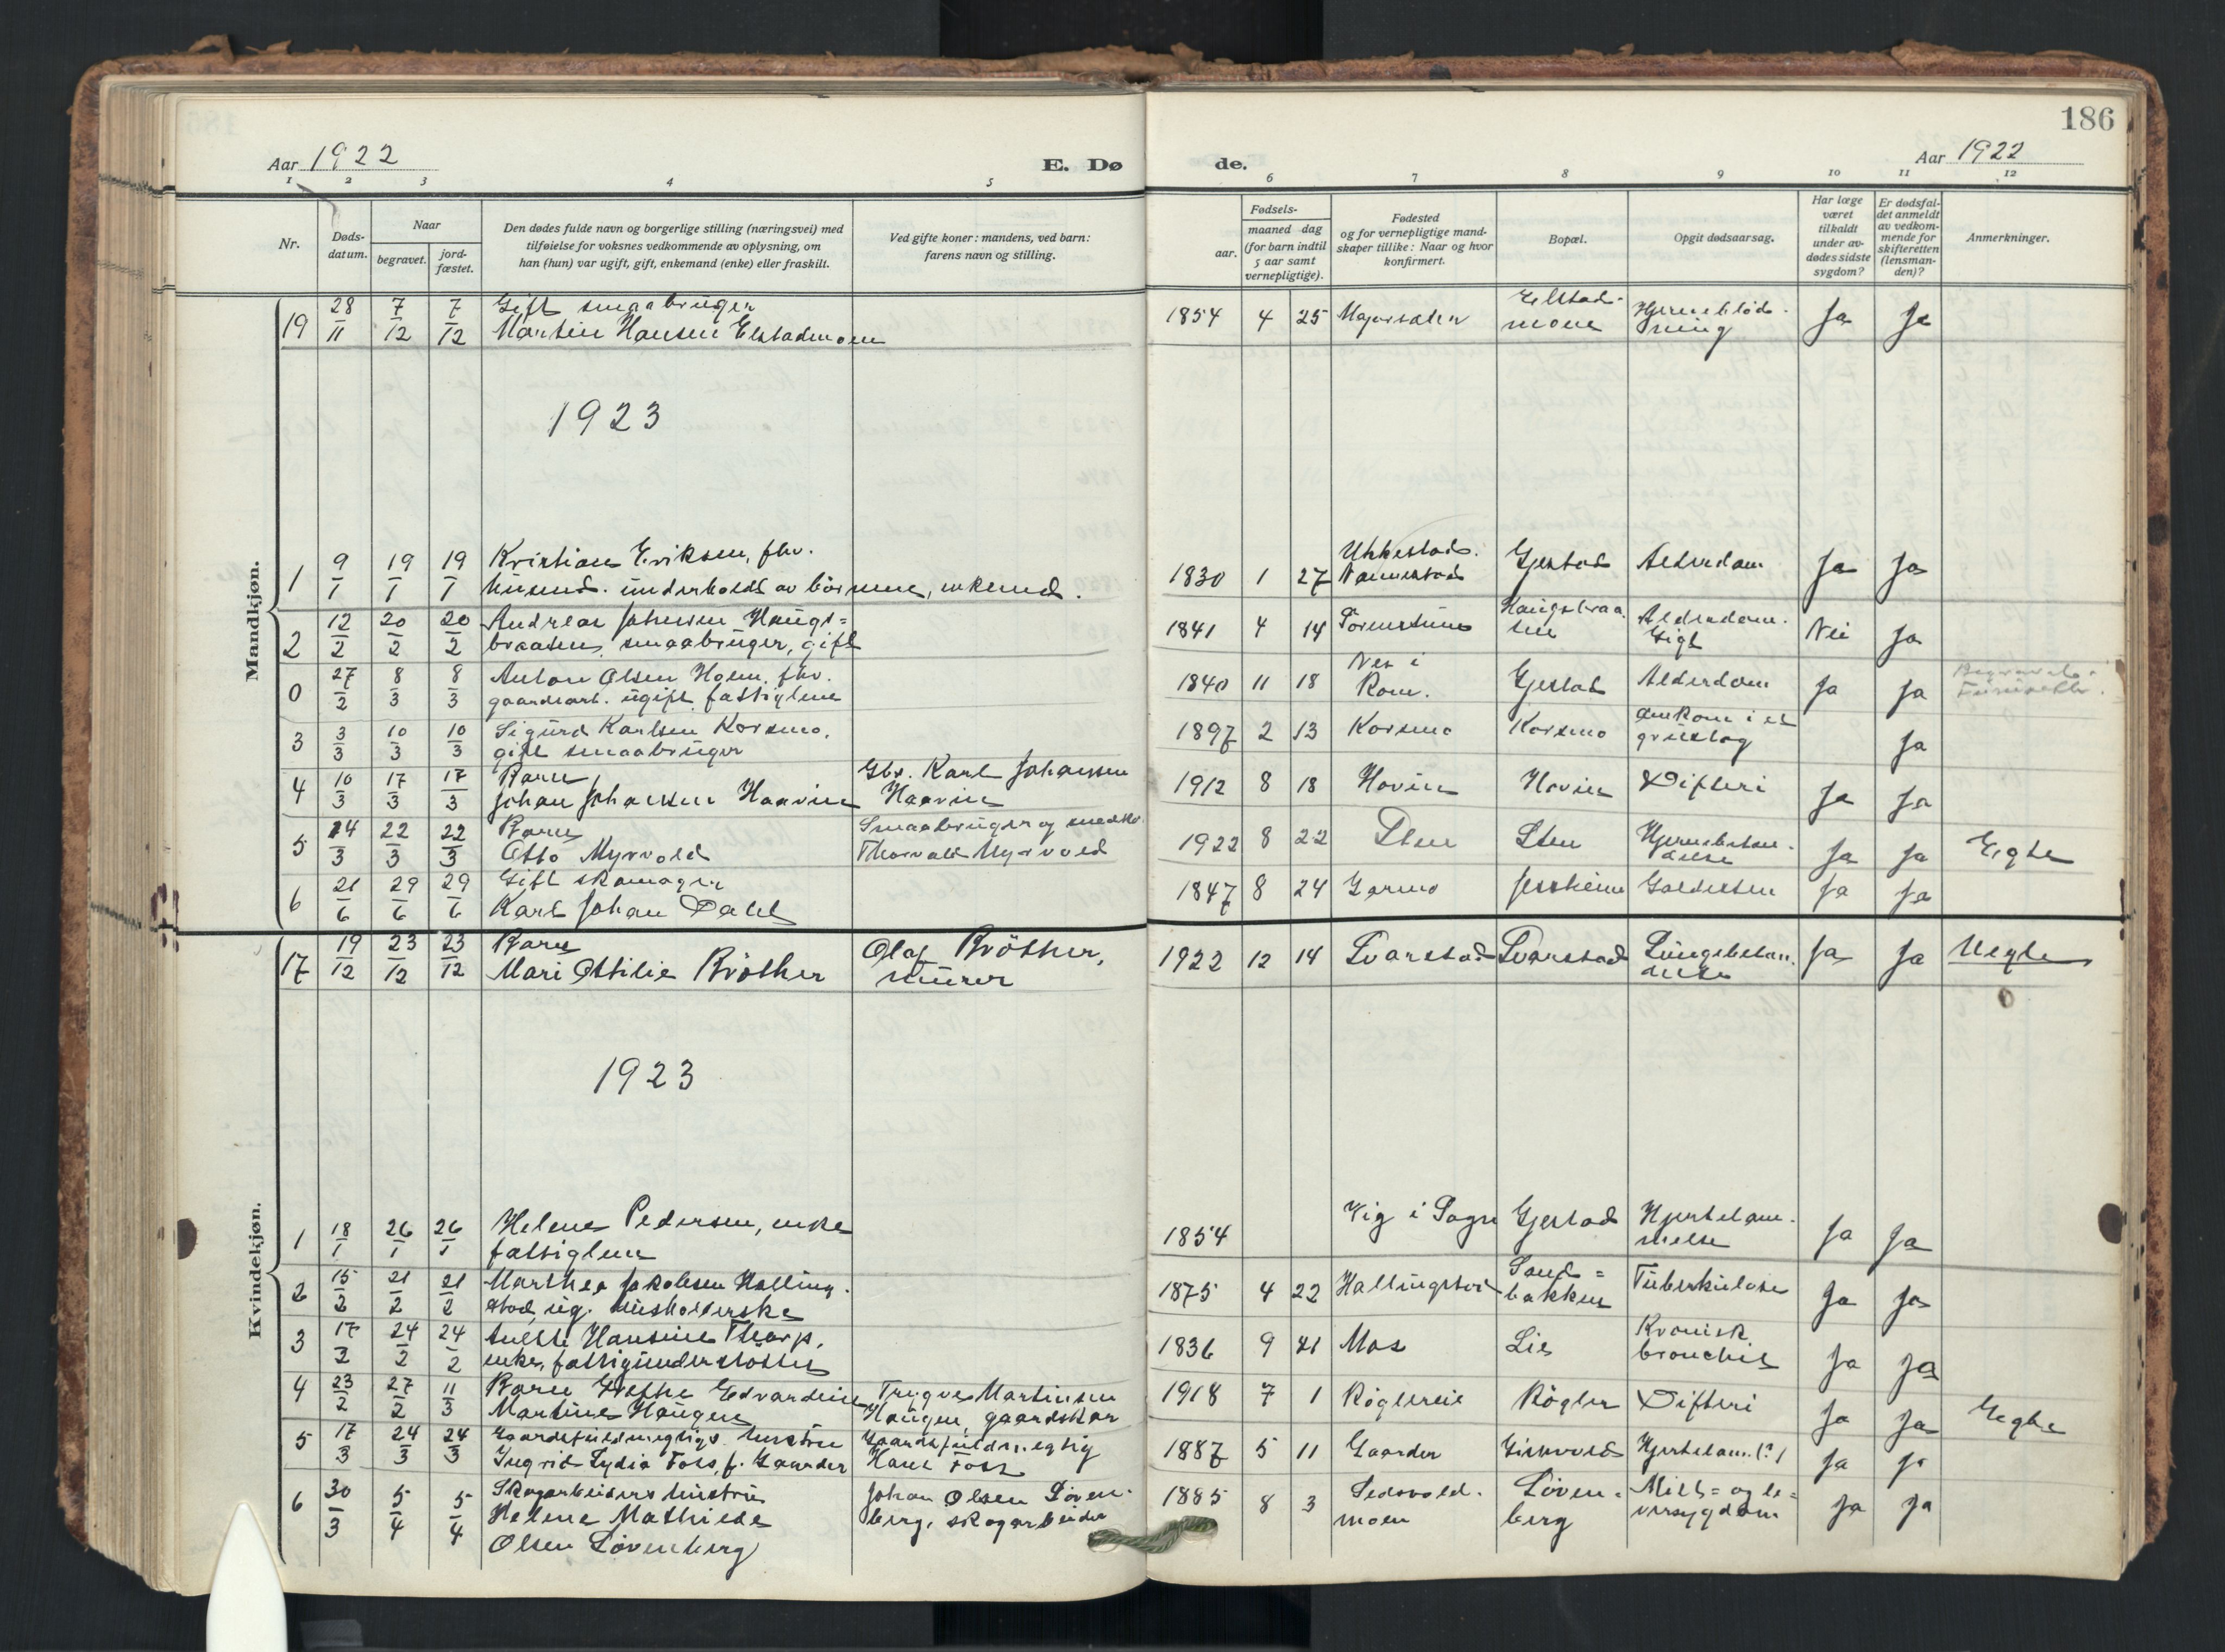 186
Aar 1922
E. Dø
de.
Aar 1922
1 2 3 4 5
6 7 8 9 10 11 12
Nr.
Døds-
datum.
Naar
begravet.
jord-
fæstet.
Den dødes fulde navn og borgerlige stilling (næringsvei) med
tilføielse for voksnes vedkommende av oplysning, om
han (hun) var ugift, gift, enkemand (enke) eller fraskilt.
Ved gifte koner: mandens, ved barn:
farens navn og stilling.
Fødsels-
aar.
maaned dag
(for barn indtil
5 aar samt
vernepligtige).
Fødested
og for vernepligtige mand-
skaper tillike: Naar og hvor
konfirmert.
Bopæl.
Opgit dødsaarsag.
Har læge
været
tilkaldt
under av-
dødes sidste
sygdom?
Er dødsfal-
det anmeldt
av vedkom-
mende for
skifteretten
(lensman-
den)?
Anmerkninger.
Mandkjøn.
19 28/11 7/12 7/12 Gift smaabruger
Martin Hansen Elstadmoen
1854 4 25 Elstad-
moen Hjerneblød-
ning Ja Ja
1923
1 9/1 19/1 19/1 Kristian Eriksen, fhv.
husmd. underholdt av børnene, enkemd.
1830 1 27
Nannestad Gjestad Alderdom Ja Ja
2 12/2 20/2 20/2 Andreas Johnsen Haugs=
braaten, smaabruger, gift
1841 4 14 Haugsbraa-
ten Alderdom.
Gigt Nei Ja
0 27/2 8/3 8/3 Anton Olsen Holm, fhv.
gaardsarb. ugift, fattiglem
1840 11 18 Nes i
Rom. Gjestad Alderdom Ja Ja
3 3/3 10/3 10/3 Sigurd Karlsen Korsmo,
gift smaabruger
1897 2 13 Korsmo Korsmo Omkom i et
grustag Ja
4 10/3 17/3 17/3 Barn
Johan Johansen Haavin
Gbr. Karl Johansen
Haavin
1912 8 18 Hovin Hovin Difteri Ja Ja
5 14/3 22/3 22/3 Barn
Otto Myrvold
Smaabruger og
Thorvald Myrvold
1922 8 22 Sten Sten Hjernebetæn-
delse Ja Ja Egte
6 21/6 29/6 29/6 Gift skomager
Karl Johan Dahl
1847 8 24 Garmo Jessheim Galdesten Ja Ja
Kvindekjøn.
17 19/12 23/12 23/12 Barn
Mari Ottilie Bröther
Olaf Bröther,
murer
1922 12 14 Tvarstad Tvarstad Lungebetæn-
delse Ja Ja Uegte
1923
1 18/1 26/1 26/1 Helene Pedersen, enke
fattiglem
1854 Vig i Sogn Gjestad Hjertelam-
melse Ja Ja
2 15/2 21/2 21/2 Marthea Jakobsen Halling-
stad, ug. husholderske
1875 4 22 Hallingstad Sand=
bakken Tuberkulose Ja Ja
3 17/2 24/2 24/2 Anette Hansine Thorp,
enke, fattigunderstøttet
1836 9 21 Mos Lie Kronisk
bronchit Ja Ja
4 23/2 27/2 11/3 Barn Grethe Edvardine
Martine Haugen
Trygve Martinsen
Haugen, gaardskar
1918 7 1 Røgler Difteri Ja Ja Uegte
5 17/3 24/3 24/3 Gaardsfuldmegtigs hustru
Ingrid Lydia Foss, f. Gaarder
Gaardsfuldmegtig
Hans Foss
1887 5 11 Gaarder Hjertelam. (?) Ja Ja
6 30/3 5/4 5/4 Skogarbeiders hustru
Helene Mathilde
Olsen Løvenberg
Johan Olsen Løven-
berg, skogarbeider
1885 8 3 Sedsvold-
moen Løven-
berg Milt= og le=
versygdom Ja Ja